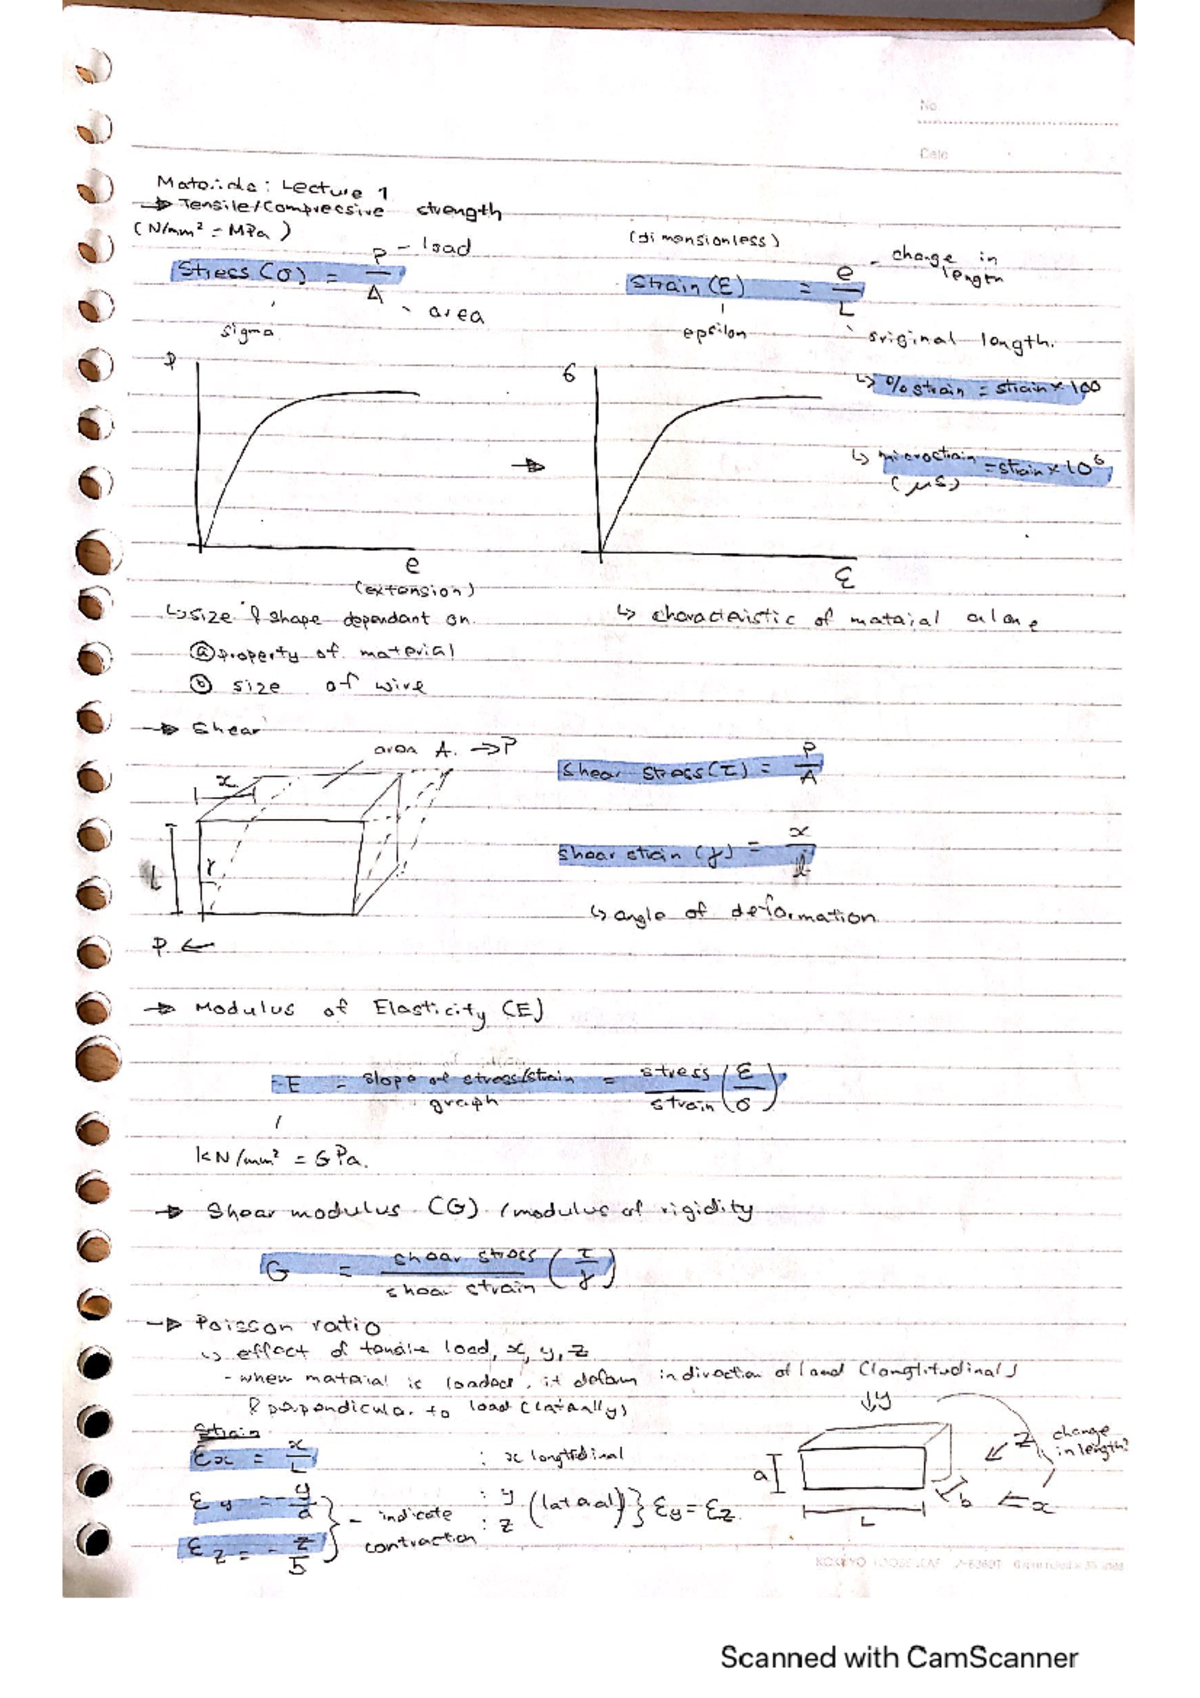 No
Date
Materials: Lecture 1
→ Tensile/Compressive strength
(N/mm² = MPa)
Stress (σ) = P/A
- load
- area
sigma
(dimensionless)
Strain (ε) = e/L
- change in length
original length.
epsilon
↳ % strain = strain × 100
↳ microstrain = strain × 10⁶
(μs)
P
e
(extension)
→
σ
ε
↳ size & shape dependant on
ⓐ property of material
ⓑ size of wire
↳ characteristic of material alone
→ Shear
area A. → P
x
γ
L
P ←
Shear stress (τ) = P/A
Shear strain (γ) = x/l
↳ angle of deformation
→ Modulus of Elasticity (E)
E = slope of stress/strain graph = stress/strain (ε/σ)
kN/mm² = GPa.
→ Shear modulus (G) / modulus of rigidity
G = shear stress/shear strain (τ/γ)
→ Poisson ratio
↳ effect of tensile load, x, y, z
- when material is loaded, it deform in direction of load (longtitudinal)
& perpendicular to load (laterally)
Strain
εx = x/L : x longtidinal
εy = -y/a } - indicate contraction : y (lateral) } εy = εz
εz = -z/b : z
↓y
z
change in length?
a
b
← x
L
KOKUYO LOOSE-LEAF
Scanned with CamScanner